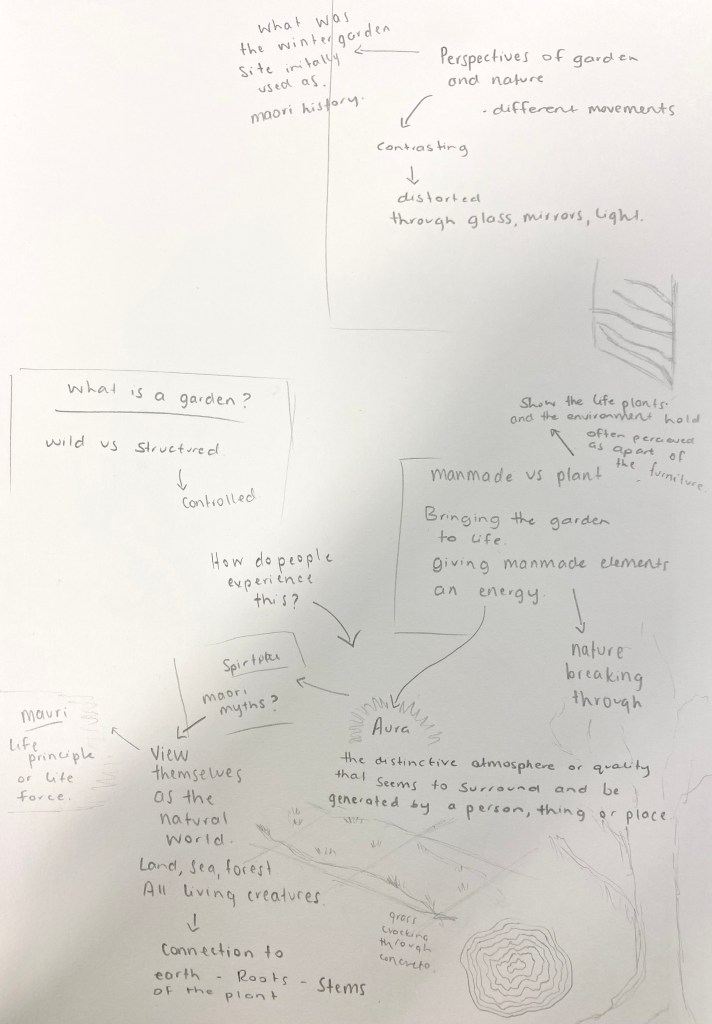 what was
the wintergarden
site initally
used as.
maori history.
Perspectives of garden
and nature
- different movements
contrasting
distorted
through glass, mirrors, light.
what is a garden?
wild vs structured
controlled
Show the life plants
and the environment hold
often percieved
as apart of
the furniture.
manmade vs plant
Bringing the garden
to life.
giving manmade elements
an energy.
How do people
experience
this?
nature
breaking
through
maori
myths?
Aura
the distinctive atmosphere or quality
that seems to surround and be
generated by a person, thing or place
mauri
life
principle
or life
force.
View
themselves
as the
natural
world.
Land, sea, forest
All living creatures.
Connection to
earth - Roots - Stems
of the plant
grass
cracking
through
concrete.